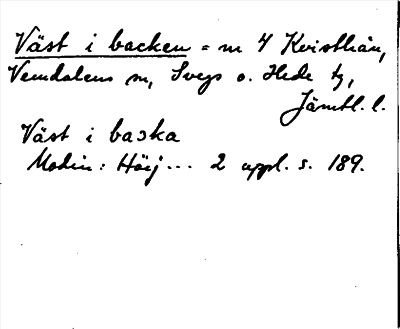 Väst i backen = nr 4 Kvisthån,
Vemdalens sn, Svegs o. Hede tg,
Jämtl. l.
Väst i baska
Modin: Härj... 2 uppl. s. 189.